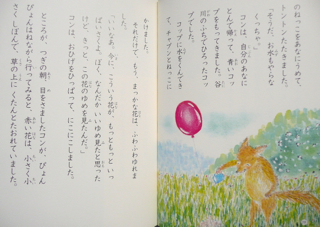 のねっこをあなにうめて、
トントンたたきました。
「そうだ、お水もやらな
くっちゃ。」
コンは、自分のあなに
とんで帰って、青いコッ
プをもってきました。谷
川のふちでひろったコッ
プでした。
コップに水をくんでき
て、チャプンとねっこに
かけました。
それだけで、もう、まっかな花は、ふわふわゆれま
した。
「いいなあ、今に、こういう花が、もっともっといっ
ぱいさくよ。なんだかいいゆめ見たと思った
けど、きっと、この花のゆめを見たんだ。」
コンは、おひげをひっぱって、にこにこしました。
ところが、つぎの朝、目をさましたコンが、ぴょん
ぴょんはねながら行ってみると、赤い花は、小さく小
さくしぼんで、草の上にくたんとたおれていました。